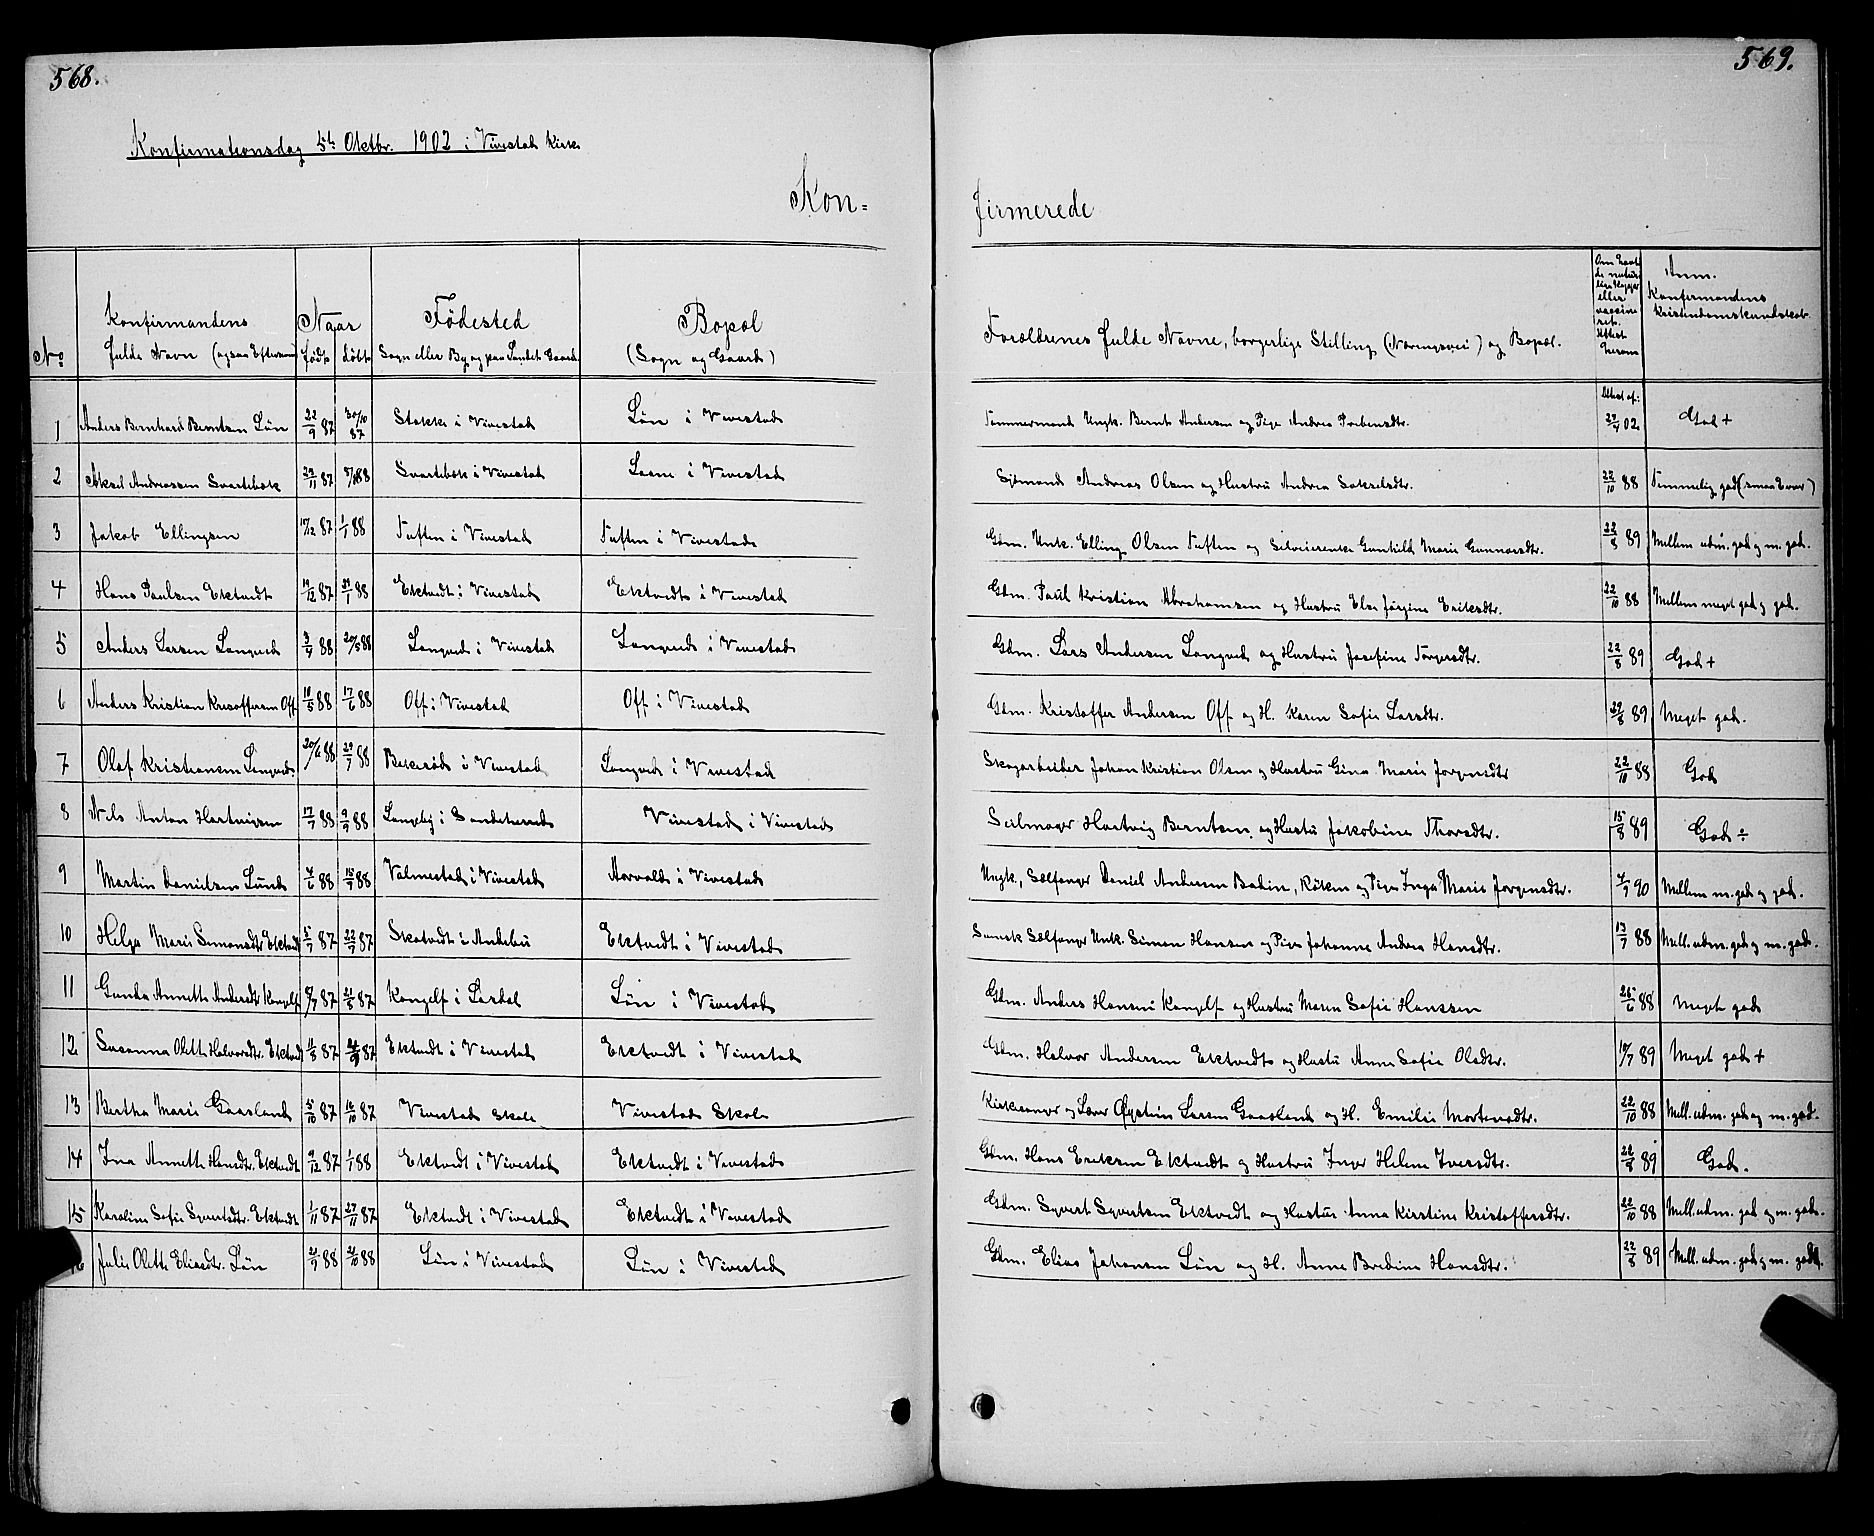 568.
569.
Konfirmationsdag 5te Oktbr. 1902 i Vivestad Kirke
Kon=
firmerede
No
Konfirmandens fulde Navn (ogsaa Efternavn)
Naar født
døbt
Fødested
Sogn eller By, og paa Landet Gaard
Bopæl
(Sogn og Gaard)
Forældrenes fulde Navne, borgerlige Stilling (Næringsvei) og Bopæl.
Om havt de naturlige Kopper eller vaccineret. Attest herom
Anm. Konfirmandens Kristendomskundskab
1 Anders Bernhard Berntsen Løn 22/9 87 30/10 87 Stokke i Vivestad Løn i Vivestad Tømmermand Ungk. Bernt Andersen og Pige Andrea Prebensdtr. Attest af: 23/4 02 God +
2 Aksel Andreassen Svartebæk 29/11 87 88 Svartebæk i Vivestad i Vivestad Sjømand Andreas Olsen og Hustru Andrea 22/10 88 Temmelig god (smaa Evner)
3 Jakob Ellingsen 17/12 87 1/1 88 Tuften i Vivestad Tuften i Vivestad Gdm. Unk. Elling Olsen Tuften og Gunhild Marie Gunnarsdtr. 22/8 89 Mellem udm. god og m. god.
4 Hans Paulsen Ektvedt 19/12 87 29/1 88 Ektvedt i Vivestad Ektvedt i Vivestad Gdm. Paul Kristian Abrahamsen og Hustru Else Jørgine Eriksdtr. 22/10 88 Mellem meget god og god.
5 Anders Larsen Langved 88 20/5 88 Langved i Vivestad Langved i Vivestad Gdm. Lars Andersen Langved og Hustru Josefine Torgersdtr. 22/8 89 God +
6 Anders Kristian Kristoffersen Off 10/5 88 17/6 88 Off i Vivestad Off i Vivestad Gdm. Kristoffer Andersen Off og H. Karen Sofie Larsdtr. 22/8 89 Meget god.
7 Olaf Kristiansen Langved 20/6 88 29/7 88 i Vivestad Langved i Vivestad Skogarbeider Johan Kristian Olsen og Hustru Gina Marie Jørgensdtr 22/10 88 God
8 Nils Anton Hartvigsen 17/7 88 9/9 88 Langeby i Sandeherred Vivestad i Vivestad Seilmager Hartvig Berntsen og Hustru Jakobine Thorsdtr. 15/8 89 God ÷
9 Martin Danielsen Lund 4/6 88 15/7 88 Valmestad i Vivestad Horvald i Vivestad Ungk., Sælfanger Daniel Andersen Bødin, Røken og Pige Inga Marie Jørgensdtr. 4/7 90 Mellem m. god og god.
10 Helga Marie Simonsdtr Ektvedt 5/7 87 22/7 87 Skatvedt i Andebu Ektvedt i Vivestad Sælfanger Unk. Simon Hansen og Pige Johanne Andrea Hansdtr. 13/7 88 Mell. udm. god og m. god.
11 Gunda Annette Andersdtr Kongelf 8/7 87 21/8 87 Kongelf i Lardal Løn i Vivestad Gdm. Anders Hansen Kongelf og Hustru Maren Sofie Hanssen 25/6 88 Meget god
12 Susanna Olette Halvorsdtr. Ektvedt 11/8 87 87 Ektvedt i Vivestad Ektvedt i Vivestad Gdm. Halvor Andersen Ektvedt og Hustru Anne Sofie Olsdtr. 10/7 89 Meget god +
13 Bertha Marie Gaasland 5/10 87 16/10 87 Vivestad Skole Vivestad Skole Kirkesanger og Lærer Øystein Larsen Gaasland og H. Emilie Mortensdtr. 22/10 88 Mell. udm. god og m. god.
14 Ina Annette Hansdtr. Ektvedt 9/12 87 1/1 88 Ektvedt i Vivestad Ektvedt i Vivestad Gdm. Hans Eriksen Ektvedt og Hustru Inger Helene Iversdtr. 22/8 89 God.
15 Karoline Sofie Syvertsdtr. Ektvedt 1/11 87 27/11 87 Ektvedt i Vivestad Ektvedt i Vivestad Gdm. Syvert Syvertsen Ektvedt og Hustru Anna Kirstine Kristoffersdtr. 22/10 88 Mell. udm. god og m. god.
Julie Olette Eliasdtr. Løn 88 88 Løn i Vivestad Løn i Vivestad Gdm. Elias Johansen Løn og H. Anne Bredine Hansdtr. 22/8 89 Mell. udm. god og m. god.